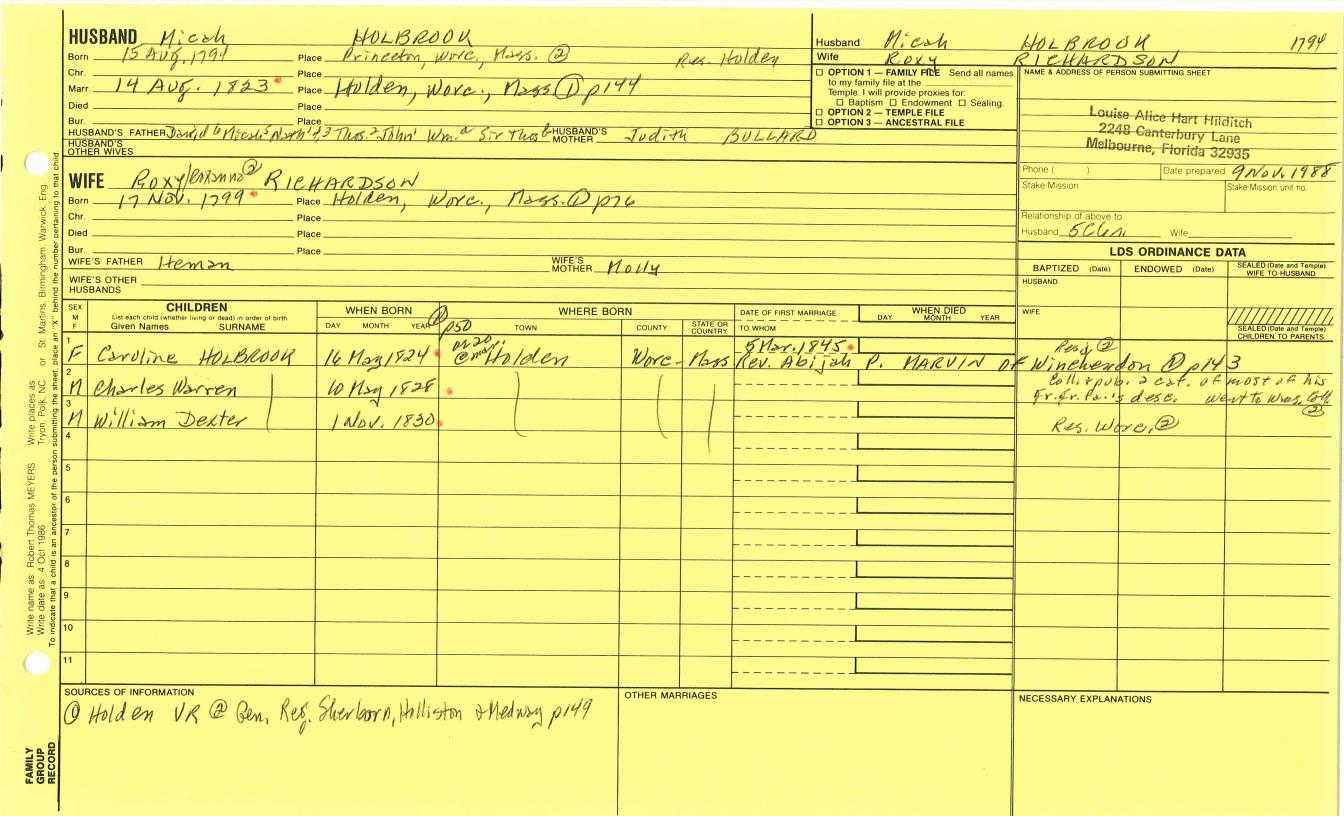 HUSBAND Micah HOLBROOK
Born 15 Aug. 1794 Place Princeton, Worc, Mass. ② Res. Holden
Chr. Place
Marr. 14 Aug. 1823 Place Holden, Worc., Mass ① p144
Died Place
Bur. Place
HUSBAND'S FATHER David Micah Nath'l Thos. John Wm. Sir Thos HUSBAND'S MOTHER Judith BULLARD
HUSBAND'S OTHER WIVES
Husband Micah HOLBROOK 1794
Wife Roxy RICHARDSON
☐ OPTION 1 — FAMILY FILE Send all names
to my family file at the
Temple. I will provide proxies for:
☐ Baptism ☐ Endowment ☐ Sealing.
☐ OPTION 2 — TEMPLE FILE
☐ OPTION 3 — ANCESTRAL FILE
NAME & ADDRESS OF PERSON SUBMITTING SHEET
Louise Alice Hart Hilditch
2248 Canterbury Lane
Melbourne, Florida 32935
Phone ( ) Date prepared 9 Nov. 1988
Stake-Mission Stake-Mission unit no.
Relationship of above to
Husband 5C6 Wife
WIFE Roxy ② RICHARDSON
Born 17 Nov. 1799 Place Holden, Worc, Mass. ① p76
Chr. Place
Died Place
Bur. Place
WIFE'S FATHER Heman WIFE'S MOTHER Molly
WIFE'S OTHER HUSBANDS
LDS ORDINANCE DATA
BAPTIZED (Date) ENDOWED (Date) SEALED (Date and Temple) WIFE TO HUSBAND
HUSBAND
WIFE
SEALED (Date and Temple) CHILDREN TO PARENTS
SEX M F CHILDREN WHEN BORN WHERE BORN DATE OF FIRST MARRIAGE WHEN DIED
List each child (whether living or dead) in order of birth
Given Names SURNAME DAY MONTH YEAR ① p50 TOWN COUNTY STATE OR COUNTRY TO WHOM DAY MONTH YEAR
1 F Caroline HOLBROOK 16 May 1824 or 20 Holden Worc- Mass 5 Mar. 1845 Rev. Abijah P. MARVIN of Winchendon ① p143
Res. ②
2 M Charles Warren 10 May 1828
Coll & pub. a cat. of most of his
Gr. Gr. Pa.'s desc. went to Coll. ②
3 M William Dexter 1 Nov. 1830 Res. Worc. ②
4
5
6
7
8
9
10
11
SOURCES OF INFORMATION
① Holden VR ② Gen. Reg. Sherborn, Holliston & Medway p149
OTHER MARRIAGES
NECESSARY EXPLANATIONS
Write name as Robert Thomas MEYERS Write places as Tryon, Polk, NC or St. Martins, Birmingham, Warwick, Eng.
Write date as 4 Oct 1986
To indicate that a child is an ancestor of the person submitting the sheet, place an "X" behind the number pertaining to that child
FAMILY
GROUP
RECORD